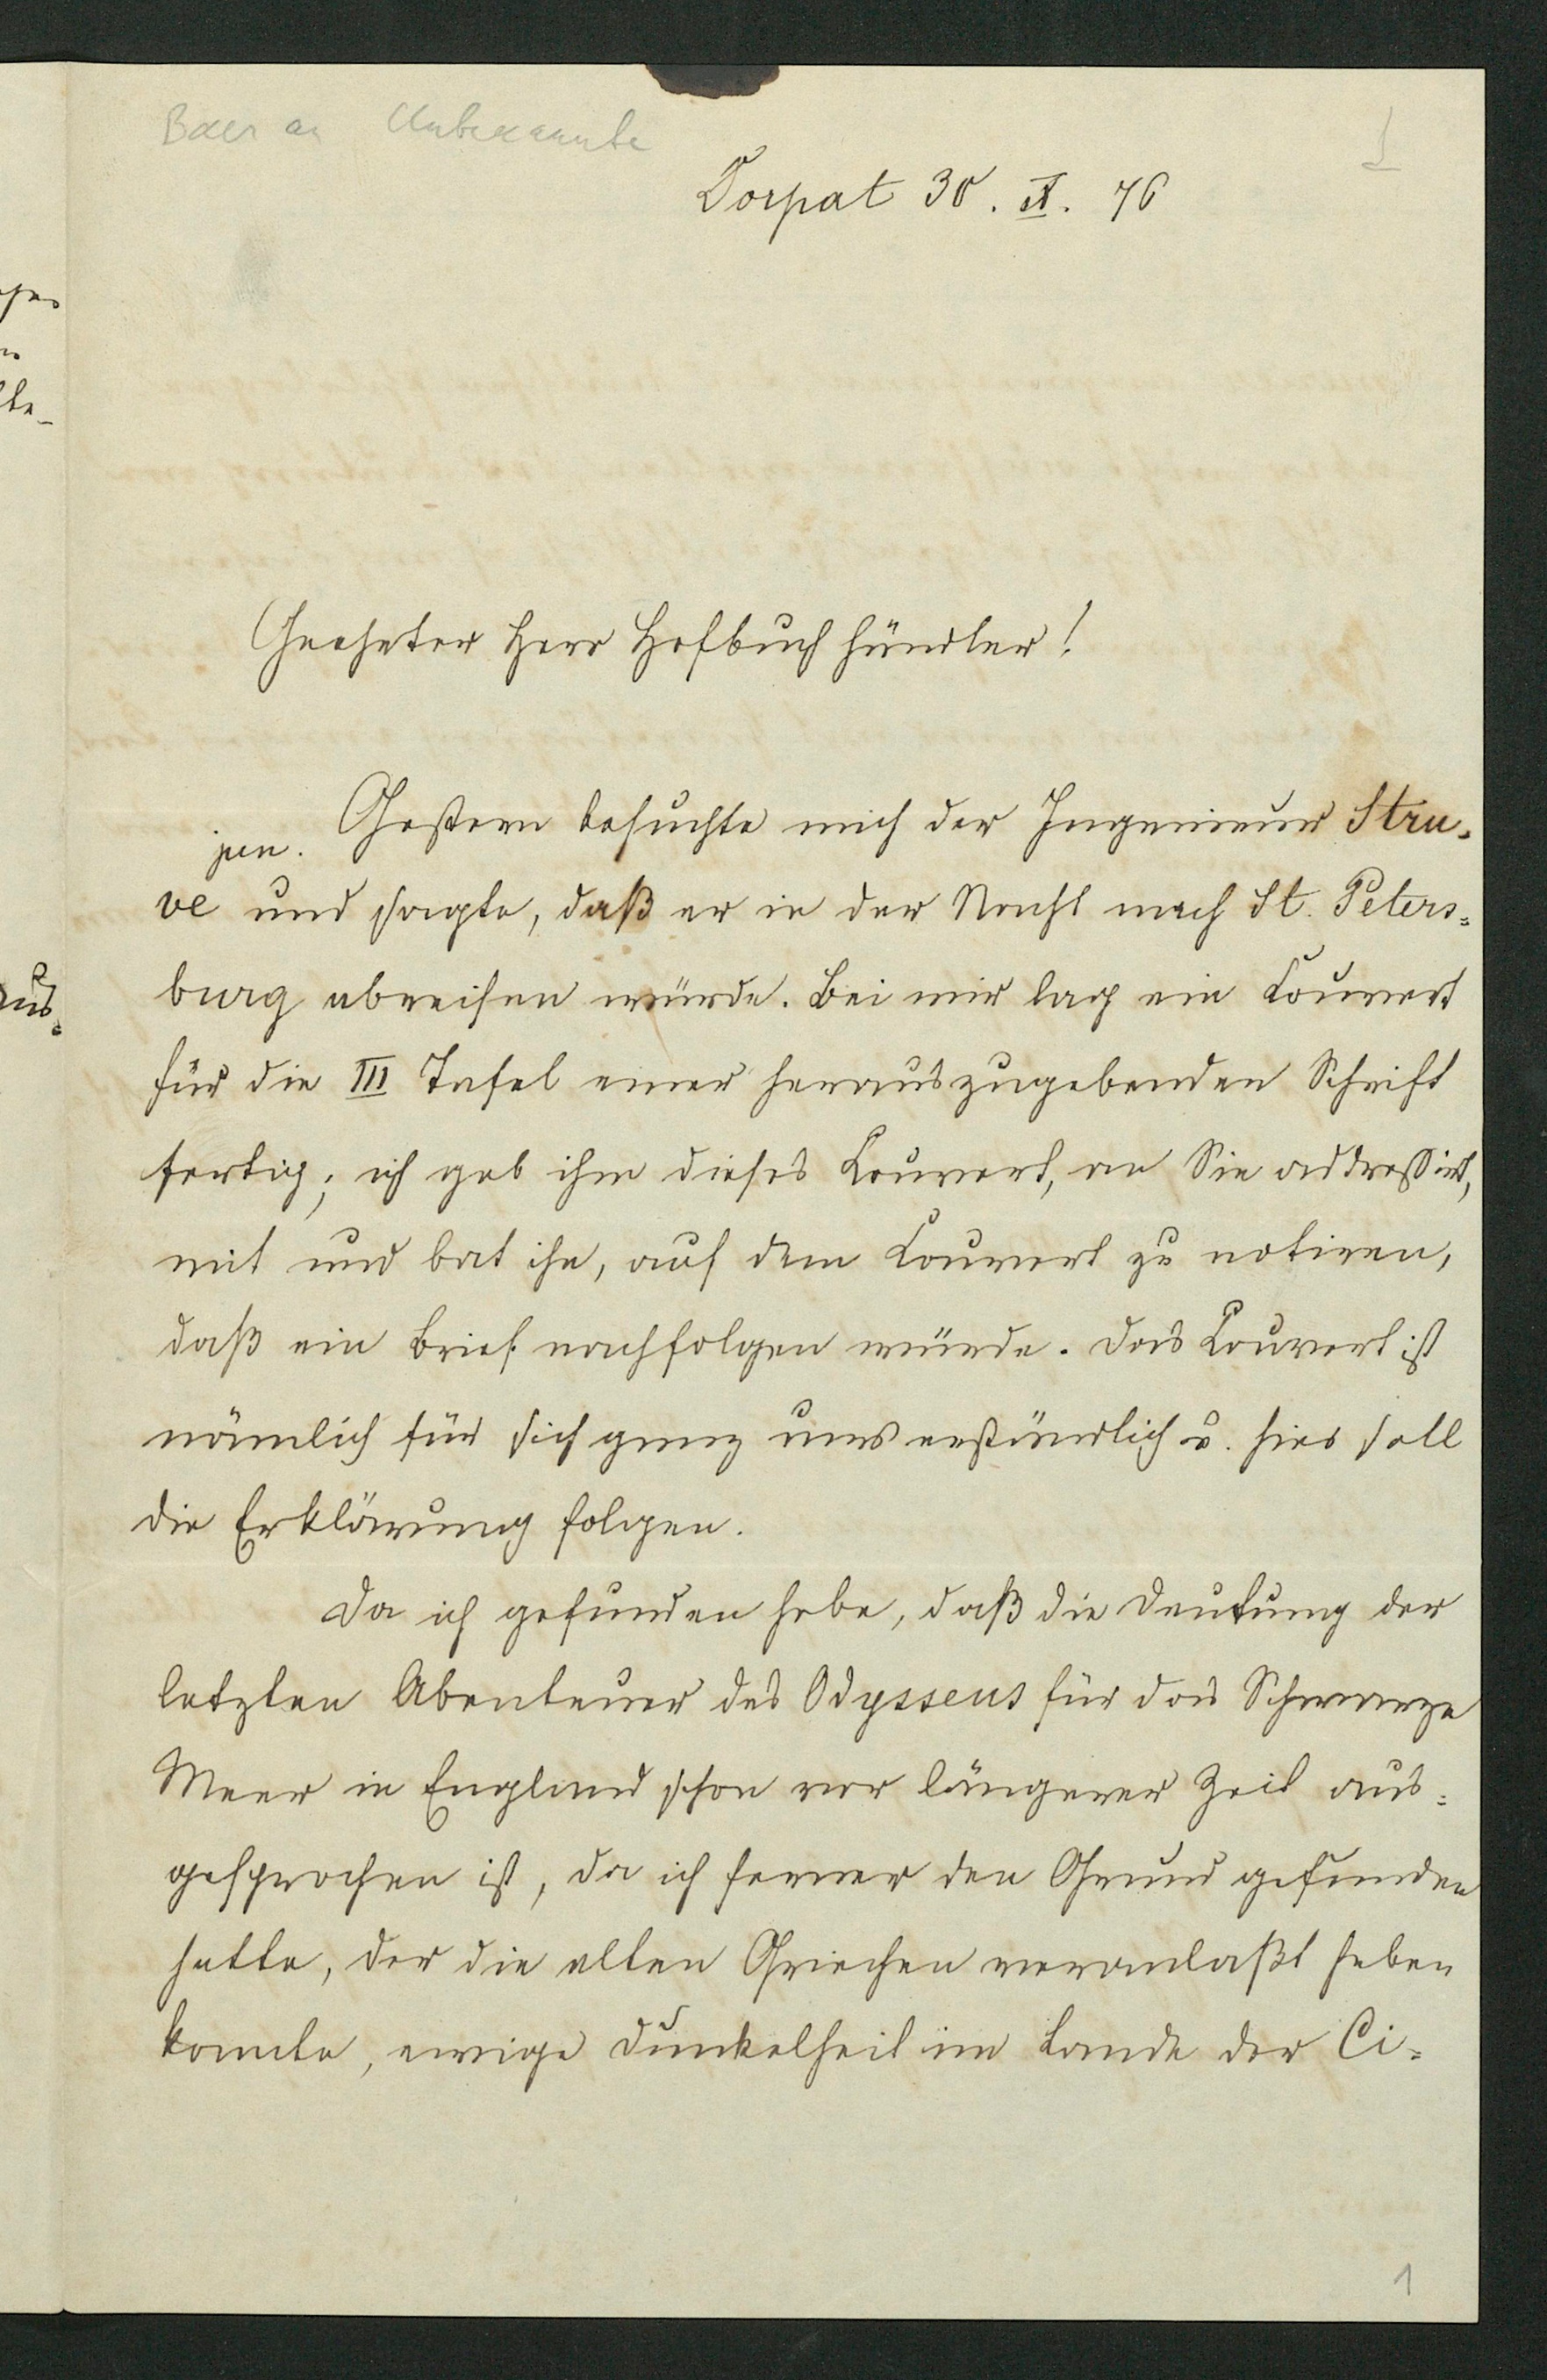 Baer an Unbekannte
1
Dorpat 30. X. 76
Geehrter Herr Hofbuchhändler!
Gestern besuchte mich der Ingenieur Stru-
jun.
ve und sagte, daß er in der Nacht nach St. Peters=
burg abreisen würde. Bei mir lag ein Couvert
für die III Tafel einer herauszugebenden Schrift
fertig; ich gab ihm dieses Couvert, an Sie addressirt,
mit und bat ihn, auf dem Couvert zu notiren,
daß ein Brief nachfolgen würde. Das Couvert ist
nämlich für sich ganz unverständlich u. hier soll
die Erklärung folgen.
Da ich gefunden habe, daß die Deutung der
letzten Abenteuer des Odysseus für das Schwarze
Meer in England schon vor längerer Zeit aus=
gesprochen ist, da ich ferner den Grund gefunden
hatte, der die alten Griechen veranlaßt haben
konnte, ewige Dunkelheit im Lande der Ci=
1